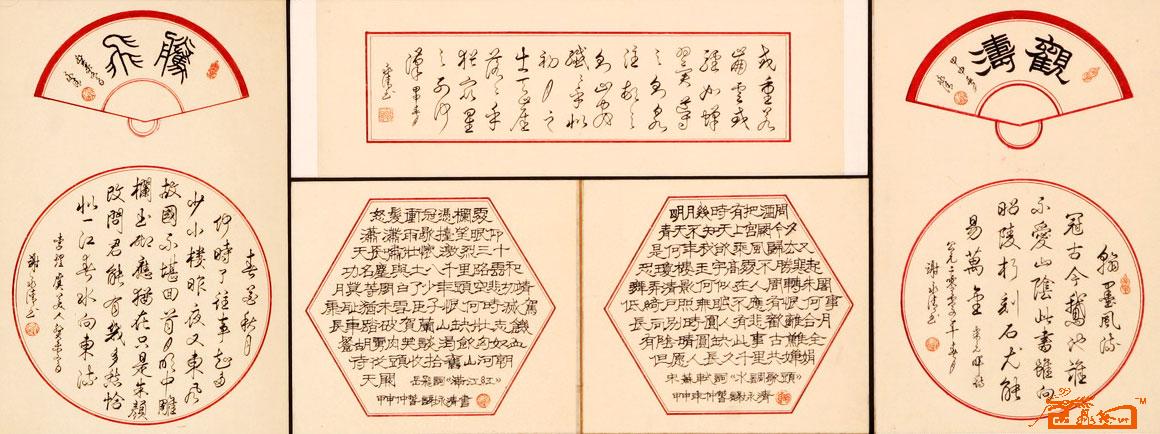 觀濤
翰墨風流
冠古今鵝池誰
不愛山陰此書雖向
昭陵朽刻石尤能
易萬金
謝永清書
或重若
崩雲或
輕如蟬
翼導
之則泉
注頓之
則山安
纖纖乎似
初月之
出天崖
落落乎
猶眾星
之列河
漢
明月幾時有把酒問
青天不知天上宮闕今夕
是何年我欲乘風歸去又
恐瓊樓玉宇高處不勝寒起
舞弄清影何似在人間轉朱閣
低綺戶照無眠不應有恨何事
長向別時圓人有悲歡離合月
有陰晴圓缺此事古難全
但願人長久千里共嬋娟
宋蘇軾詞《水調歌頭》
怒髮衝冠憑欄處
瀟瀟雨歇抬望眼仰
天長嘯壯懷激烈三十
功名塵與土八千里路雲和
月莫等閒白了少年頭空悲切靖
康恥猶未雪臣子恨何時滅駕
長車踏破賀蘭山缺壯志飢餐
胡虜肉笑談渴飲匈奴血
待從頭收拾舊山河朝
天闕
岳飛詞《滿江紅》
騰飛
春花秋月
何時了往事知多
少小樓昨夜又東風
故國不堪回首月明中雕
欄玉砌應猶在只是朱顏
改問君能有幾多愁恰
似一江春水向東流
李煜虞美人
謝永清書